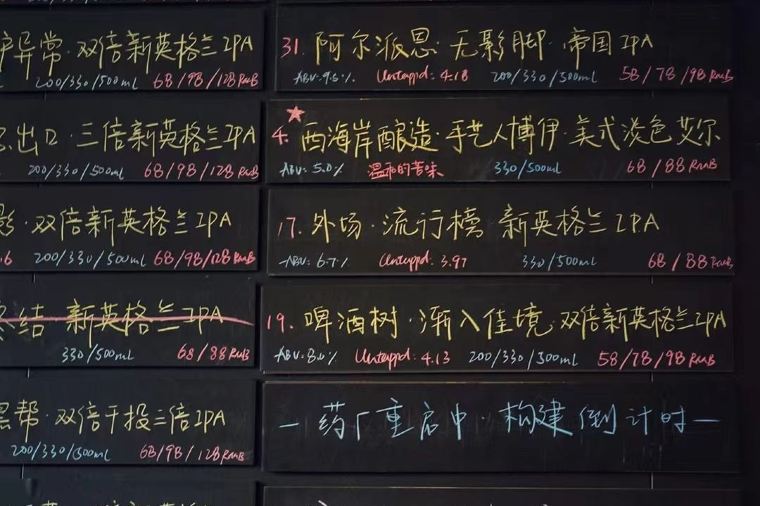 异常·双倍新英格兰IPA
200/330/500ml 68/98/128RmB
出口·三倍新英格兰IPA
200/330/500ml 68/98/128RmB
影·双倍新英格兰IPA
.6 200/330/500ml 68/98/128RmB
终结 新英格兰IPA
330/500ml 68/88RmB
黑帮·双倍干投三倍IPA
200/330/500ml 68/98/128RmB
31. 阿尔派恩·无影脚·帝国IPA
ABV:9.5% Untappd:4.18 200/330/500ml 58/78/98RmB
4. 西海岸酿造·手艺人博伊·美式淡色艾尔
ABV:5.0% 温和的苦味 330/500ml 68/88RmB
17. 外场·流行榜 新英格兰IPA
ABV:6.7% Untappd:3.97 330/500ml 68/88RmB
19. 啤酒树·渐入佳境·双倍新英格兰IPA
ABV:8.0% Untappd:4.13 200/330/500ml 58/78/98RmB
—药厂重启中·构建倒计时—